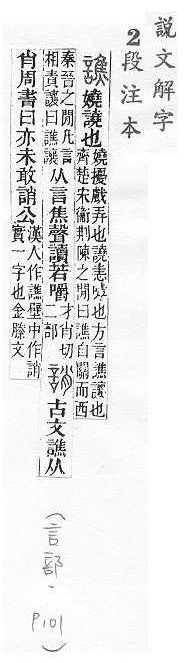 說文解字
2段注本
譙 嬈譊也 嬈擾戲弄也譊恚嘑也方言譙讓也
齊楚宋衞荆陳之閒曰譙自關而西
秦晉之閒凡言
相責讓曰譙讓 从言焦聲讀若嚼 才肖切
二部 誚 古文譙从
肖周書曰亦未敢誚公 漢人作譙壁中作誚
實一字也金縢文
(言部、P101)